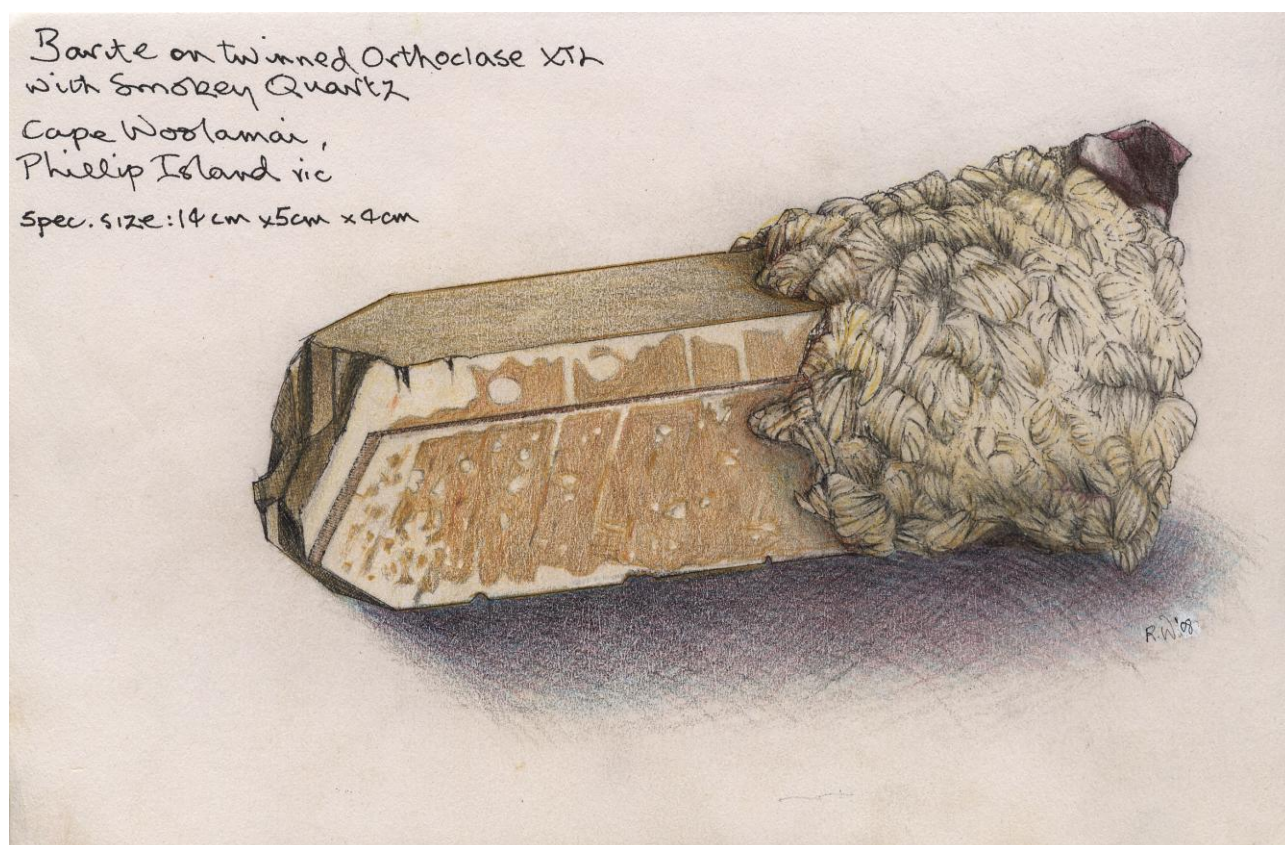 Barite on twinned Orthoclase XTL
with Smokey Quartz
Cape Woolamai,
Phillip Island vic
spec. size: 14cm x 5cm x 4cm
R.W.'08